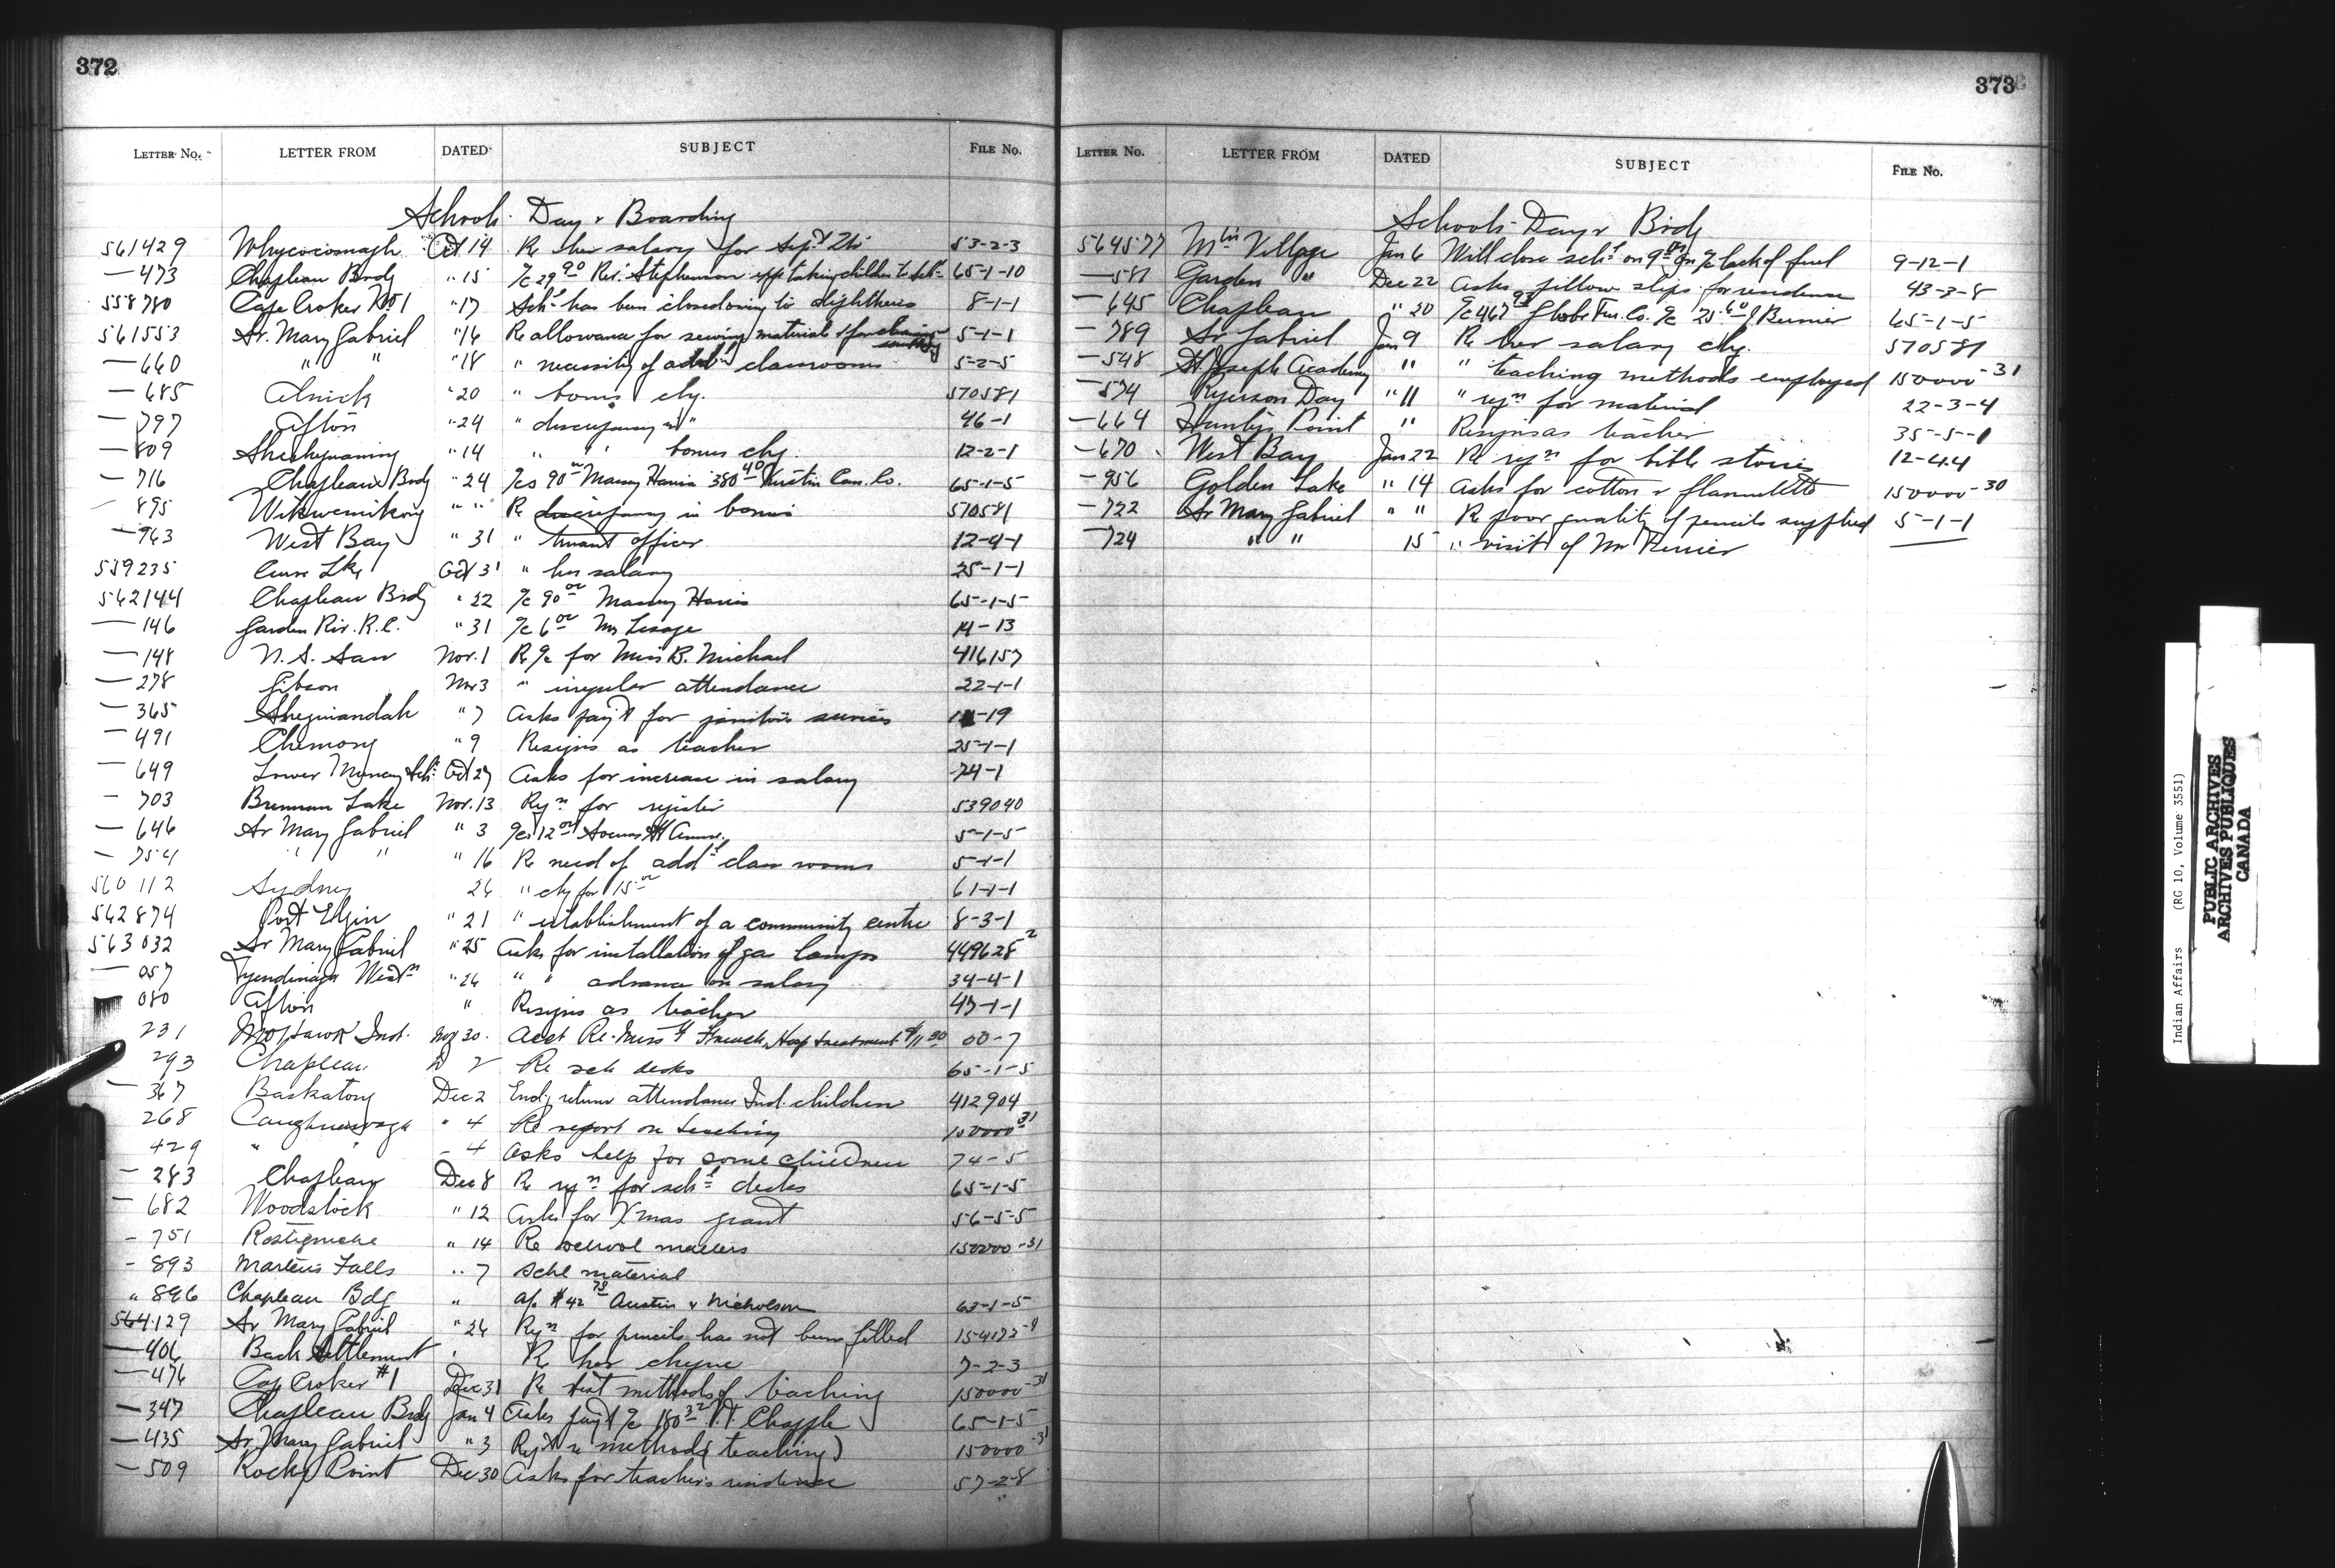 372
LETTER No. LETTER FROM DATED SUBJECT FILE No.
Schools Day & Boarding
561429 Whycocomagh Oct 14 Re her salary for Sept 53-2-3
— 473 Chapleau Brdg " 15 Rev. Stephenson taking children to Sch. 65-1-10
558780 Cape Croker No 1 " 17 Schl has been closed owing to diphtheria 8-1-1
561553 Sr. Mary Gabriel " 16 Re allowance for sewing material & for 5-1-1
— 660 " " " 18 " necessity of addl classrooms 5-2-5
— 685 Alnick " 20 " bonus chq. 570581
— 797 Afton " 24 " discrepancy in " 46-1
— 809 Sheshegwaning " 14 " " bonus chq 12-2-1
— 716 Chapleau Brdg " 24 90 00 Massey Harris 380 40 Austin Can. Co. 65-1-5
— 895 Wikwemikong " " Re discrepancy in bonus 570581
— 763 West Bay " 31 " truant officer 12-4-1
559235 Curve Lke Oct 31 " her salary 25-1-1
562144 Chapleau Brdg " 22 90 00 Massey Harris 65-1-5
— 146 Garden Riv. R.C. " 31 6 00 Mr Lesage 14-13
— 148 N.S. Nov. 1 Re for Miss B. Michael 416157
— 278 Gibson Nov 3 " irregular attendance 22-1-1
— 365 Sheguiandah " 7 Asks pay't for janitor's services -19
— 491 Chemong " 9 Resigns as teacher 25-1-1
— 649 Lower Muncey Sch. Oct 27 Asks for increase in salary 24-1
— 703 Brennan Lake Nov. 13 Rqn for register 539040
— 646 Sr Mary Gabriel " 3 12 00 5-1-5
— 754 " " " 16 Re need of addl class rooms 5-1-1
560112 Sydney 26 " chq for 15 00 61-1-1
562874 Port Elgin " 21 " establishment of a community centre 8-3-1
563032 Sr Mary Gabriel " 25 Asks for installation of gas lamps 449628 2
— 057 Tyendinaga Westn " 26 " " advance on salary 34-4-1
080 Afton " Resigns as teacher 47-1-1
231 Mohawk Inst. Nov 30. Acct Re. Miss French, Hosp treatment 00-7
293 Chapleau D 2 Re sch desks 65-1-5
— 367 Baskatong Dec 2 Encl'g return attendance Ind. children 412904
268 Caughnawaga " 4 Re report on teaching 150000-31
429 " " - 4 Asks help for some children 74-5
— 283 Chapleau Dec 8 Re rqn for schl desks 65-1-5
— 682 Woodstock " 12 Asks for Xmas grant 56-5-5
- 751 Restigouche " 14 Re school matters 150000-31
- 893 Martens Falls " 7 Schl material
" 896 Chapleau Bdg " a/c $42 78 Austin & Nicholson 63-1-5
564129 Sr Mary Gabriel " 26 Rqn for pencils has not been filled 154172-9
— 406 Back Settlement " Re her cheque 7-2-3
— 476 Cap Croker #1 Dec 31 Re best methods of teaching 150000-31
— 347 Chapleau Brdg Jan 4 Asks pay't 180 32 Chapple 65-1-5
— 435 Sr. Mary Gabriel " 3 Rept re methods (teaching) 150000-31
— 509 Rocky Point Dec 30 Asks for teacher's residence 57-2-8
373
LETTER No. LETTER FROM DATED SUBJECT FILE No.
Schools - Day & Brdg
564577 Mtn Village Jan 6 Will close schl on 9th lack of fuel 9-12-1
— 581 Garden " Dec 22 Asks pillow slips for residence 43-3-8
— 645 Chapleau " 20 467 93 Globe Fur. Co. 25 60 J Bernier 65-1-5
— 789 Sr Gabriel Jan 9 Re her salary chq. 570581
— 548 St. Joseph Academy " " teaching methods employed 150000-31
— 574 Ryerson Day " 11 " rqn for material 22-3-4
— 664 Huntly's Point " Resigns as teacher 35-5-1
— 670 West Bay Jan 22 Re rqn for bible stories 12-4.4
— 956 Golden Lake " 14 Asks for cotton & flannelette 150000-30
— 722 Sr Mary Gabriel " " Re poor quality of pencils supplied 5-1-1
— 724 " " 15 " visit of Mr
Indian Affairs (RG 10, Volume 3551)
PUBLIC ARCHIVES
ARCHIVES PUBLIQUES
CANADA